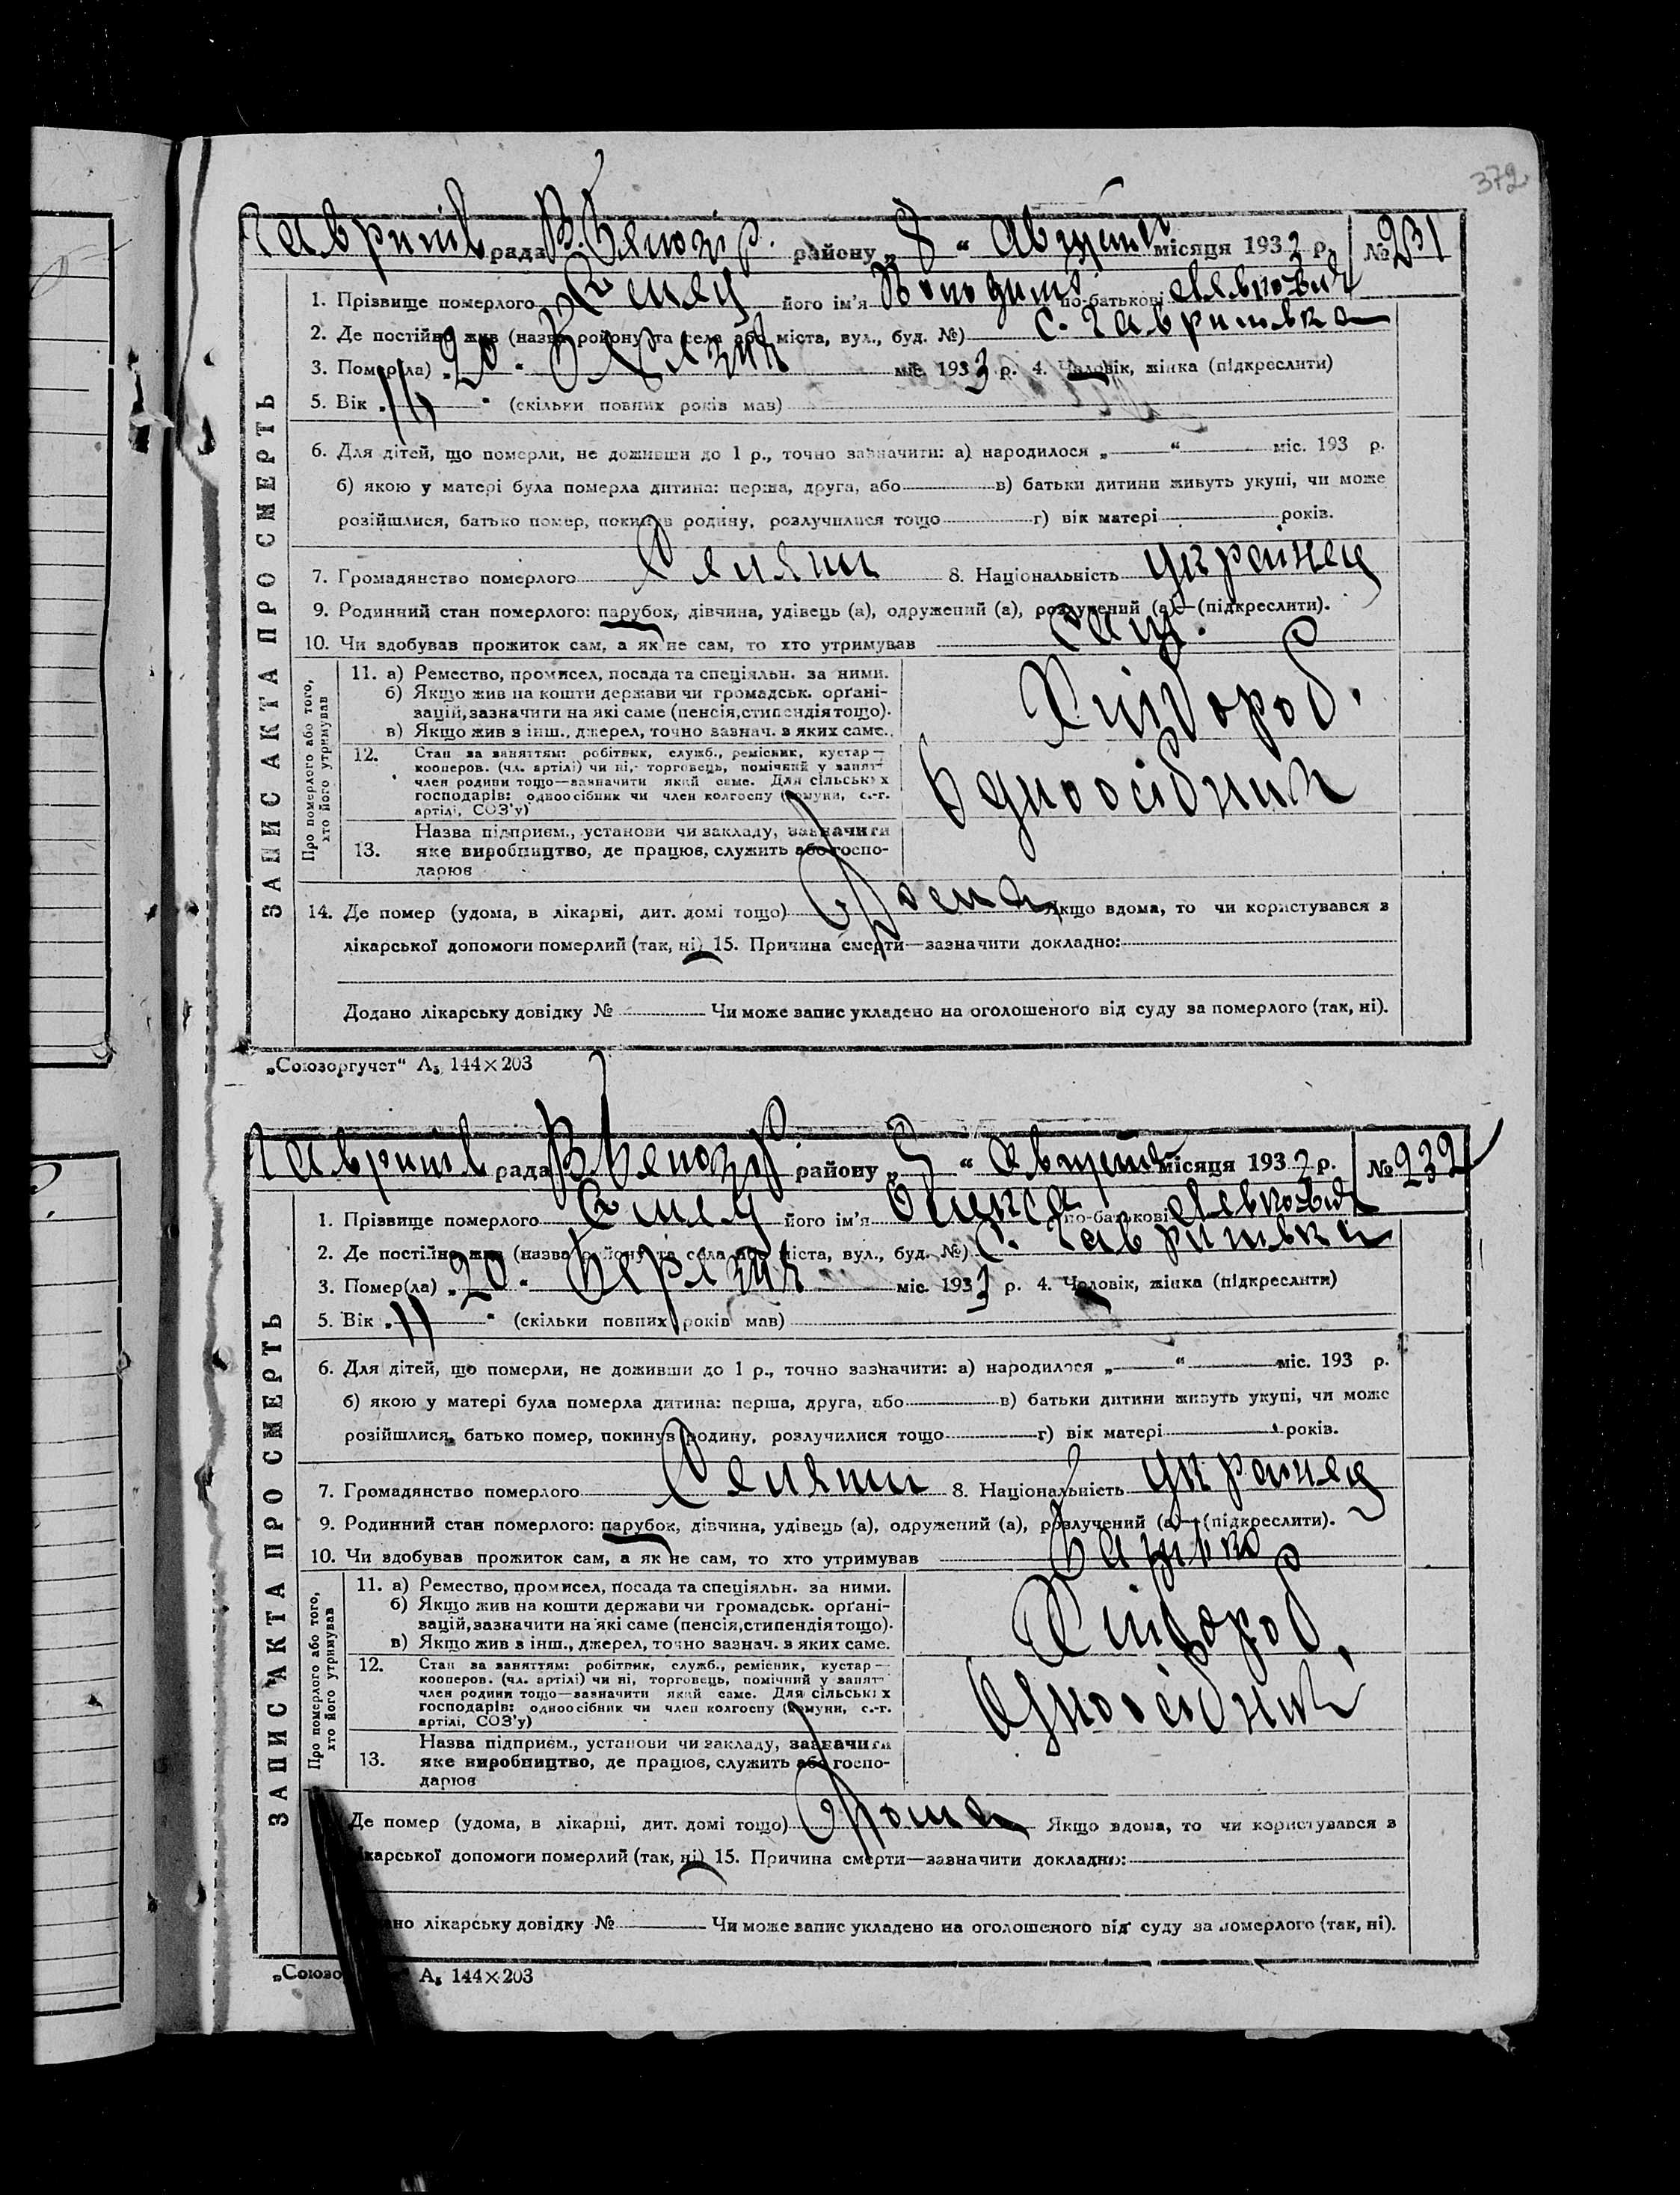 372
Гаврилів рада В. району „8“ Августа місяця 1933 р. № 231
ЗАПИС АКТА ПРО СМЕРТЬ
1. Прізвище померлого його ім'я по-батькові Левкович
2. Де постійно жив (назва району та села або міста, вул., буд. №) с. Гаврилівка
3. Помер(ла) „20“ Березня міс. 1933 р. 4. Чоловік, жінка (підкреслити)
5. Вік „ “ (скільки повних років мав)
6. Для дітей, що померли, не доживши до 1 р., точно зазначити: а) народилося „ “ міс. 193 р.
б) якою у матері була померла дитина: перша, друга, або в) батьки дитини живуть укупі, чи може
розійшлися, батько помер, покинув родину, розлучилися тощо г) вік матері років.
7. Громадянство померлого Селяни 8. Національність українец
9. Родинний стан померлого: парубок, дівчина, удівець (а), одружений (а), розлучений (а)—(підкреслити).
10. Чи здобував прожиток сам, а як не сам, то хто утримував сам.
Про померлого або того, хто його утримував
11. а) Ремество, промисел, посада та спеціяльн. за ними.
б) Якщо жив на кошти держави чи громадськ. орґані-
зацій, зазначити на які саме (пенсія, стипендія тощо).
в) Якщо жив з інш., джерел, точно зазнач. з яких саме.
Хлібороб.
12. Стан за заняттям: робітник, служб., ремісник, кустар—
кооперов. (чл. артілі) чи ні, торговець, помічний у занят-
член родини тощо—зазначити який саме. Для сільських
господарів: одноосібник чи член колгоспу (комуни, с.-г.
артілі, СОЗ'у)
Одноосібник
13. Назва підприєм., установи чи закладу, зазначити
яке виробництво, де працює, служить або госпо-
дарює
14. Де помер (удома, в лікарні, дит. домі тощо) Дома Якщо вдома, то чи користувався з
лікарської допомоги померлий (так, ні) 15. Причина смерти—зазначити докладно:
Додано лікарську довідку № Чи може запис укладено на оголошеного від суду за померлого (так, ні).
„Союзоргучет“ А₅ 144×203
Гаврилів рада В. району „ “ Августа місяця 1933 р. № 232
ЗАПИС АКТА ПРО СМЕРТЬ
1. Прізвище померлого його ім'я Олекса по-батькові Левкович
2. Де постійно жив (назва району та села або міста, вул., буд. №) с. Гаврилівка
3. Помер(ла) „20“ Березня міс. 1933 р. 4. Чоловік, жінка (підкреслити)
5. Вік „11“ (скільки повних років мав)
6. Для дітей, що померли, не доживши до 1 р., точно зазначити: а) народилося „ “ міс. 193 р.
б) якою у матері була померла дитина: перша, друга, або в) батьки дитини живуть укупі, чи може
розійшлися, батько помер, покинув родину, розлучилися тощо г) вік матері років.
7. Громадянство померлого Селяни 8. Національність українец
9. Родинний стан померлого: парубок, дівчина, удівець (а), одружений (а), розлучений (а)—(підкреслити).
10. Чи здобував прожиток сам, а як не сам, то хто утримував Батько
Про померлого або того, хто його утримував
11. а) Ремество, промисел, посада та спеціяльн. за ними.
б) Якщо жив на кошти держави чи громадськ. орґані-
зацій, зазначити на які саме (пенсія, стипендія тощо).
в) Якщо жив з інш., джерел, точно зазнач. з яких саме.
Хлібороб
12. Стан за заняттям: робітник, служб., ремісник, кустар—
кооперов. (чл. артілі) чи ні, торговець, помічний у занят-
член родини тощо—зазначити який саме. Для сільських
господарів: одноосібник чи член колгоспу (комуни, с.-г.
артілі, СОЗ'у)
Одноосібник
13. Назва підприєм., установи чи закладу, зазначити
яке виробництво, де працює, служить або госпо-
дарює
Де помер (удома, в лікарні, дит. домі тощо) Дома Якщо вдома, то чи користувався з
карської допомоги померлий (так, ні) 15. Причина смерти—зазначити докладно:
но лікарську довідку № Чи може запис укладено на оголошеного від суду за померлого (так, ні).
„Союзо “ А₅ 144×203